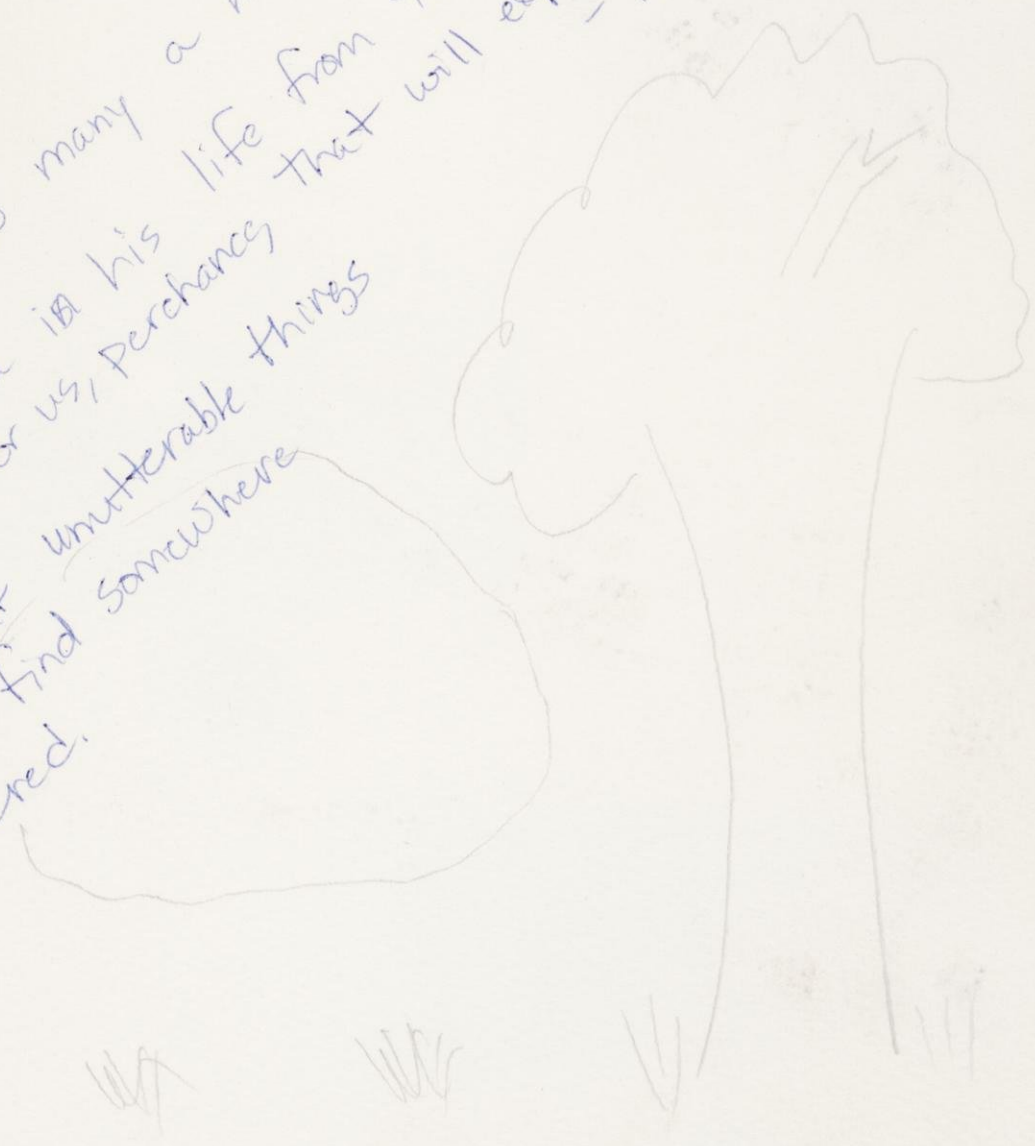 many a
in his life from
or us, perchance that will
unutterable things
find somewhere
red.